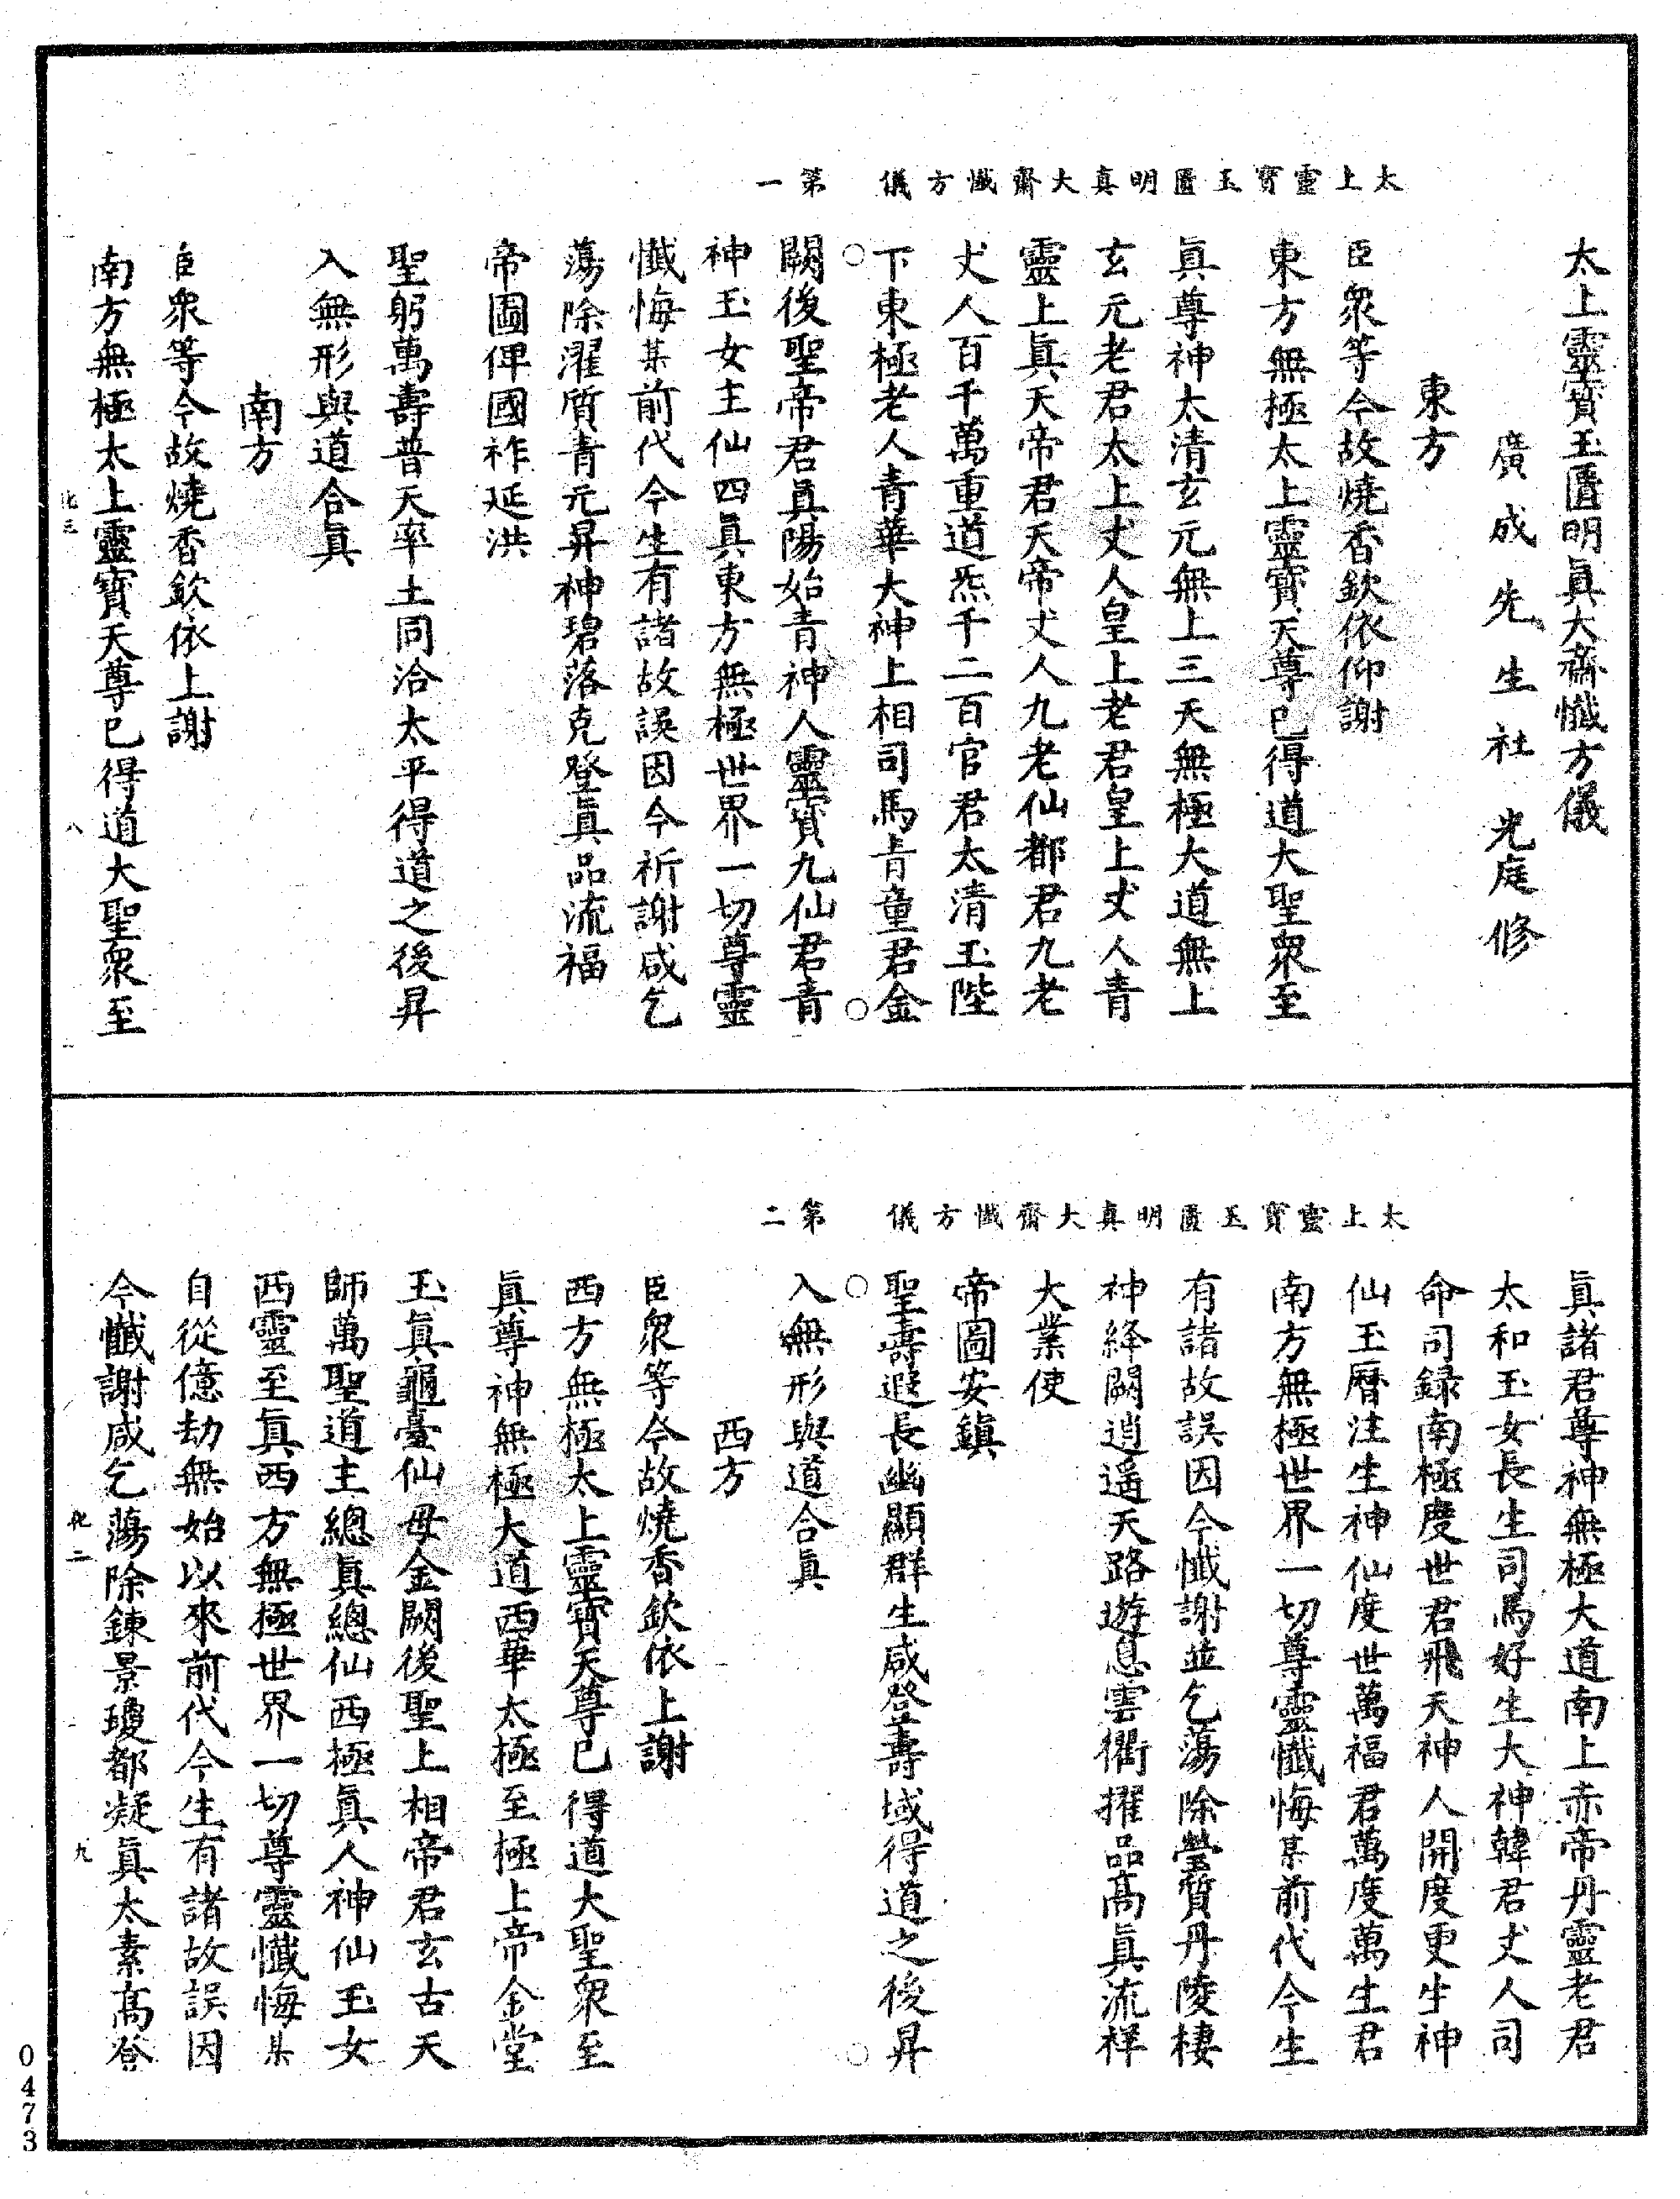 太上靈寶玉匱明真大齋懺方儀　第一
太上靈寶玉匱明眞大齋懺方儀
廣成先生杜光庭修
東方
臣衆等今故燒香欽依仰謝
東方無極太上靈寶天尊已得道大聖衆至
眞尊神太清玄元無上三天無極大道無上
玄元老君太上丈人皇上老君皇上丈人青
靈上眞天帝君天帝丈人九老仙都君九老
丈人百千萬重道炁千二百官君太清玉陛
下東極老人青華大神上相司馬青童君金
闕後聖帝君眞陽始青神人靈寶九仙君青
神玉女主仙四眞東方無極世界一切尊靈
懺悔某前代今生有諸故誤因今祈謝咸乞
蕩除濯質青元昇神碧落克登眞品流福
帝圖俾國祚延洪
聖躬萬壽普天率土同洽太平得道之後昇
入無形與道合眞
南方
臣衆等今故燒香欽依上謝
南方無極太上靈寶天尊已得道大聖衆至
八
太上靈寶玉匱明真大齋懺方儀　第二
眞諸君尊神無極大道南上赤帝丹靈老君
太和玉女長生司馬好生大神韓君丈人司
命司録南極度世君飛天神人開度更生神
仙玉曆注生神仙度世萬福君萬度萬生君
南方無極世界一切尊靈懺悔某前代今生
有諸故誤因今懺謝並乞蕩除瑩質丹陵棲
神絳闕逍遥天路遊息雲衢擢品高眞流祥
大業使
帝圖安鎮
聖壽遐長幽顯群生咸登壽域得道之後昇
入無形與道合眞
西方
臣衆等今故燒香欽依上謝
西方無極太上靈寶天尊已得道大聖衆至
眞尊神無極大道西華太極至極上帝金堂
玉眞龜臺仙母金闕後聖上相帝君玄古天
師萬聖道主總眞總仙西極眞人神仙玉女
西靈至眞西方無極世界一切尊靈懺悔某
自從億劫無始以來前代今生有諸故誤因
今懺謝咸乞蕩除錬景瓊都凝眞太素高登
九
0473